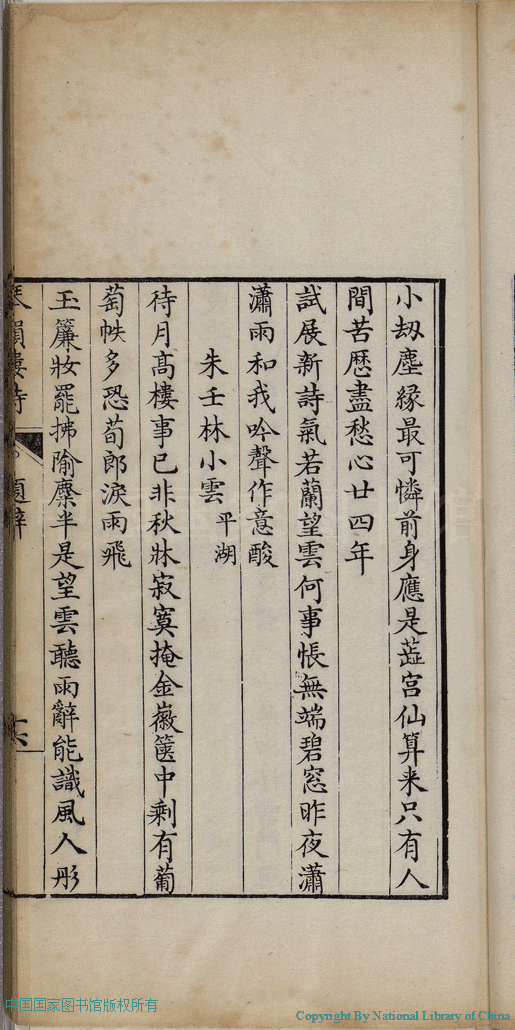 小刼塵緣最可憐前身應是蕋宮仙算来只有人
間苦歷盡愁心廿四年
試展新詩氣若蘭望雲何事悵無端碧窓昨夜瀟
瀟雨和我吟聲作意酸
朱壬林小雲平湖
待月高樓事已非秋牀寂寞掩金徽篋中剩有葡
萄帙多恐荀郎淚雨飛
玉簾妝罷拂隃麋半是望雲聽雨辭能識風人彤
琴韻樓詩 題辭 六
中国国家图书馆版权所有
Copyright By National Library of China